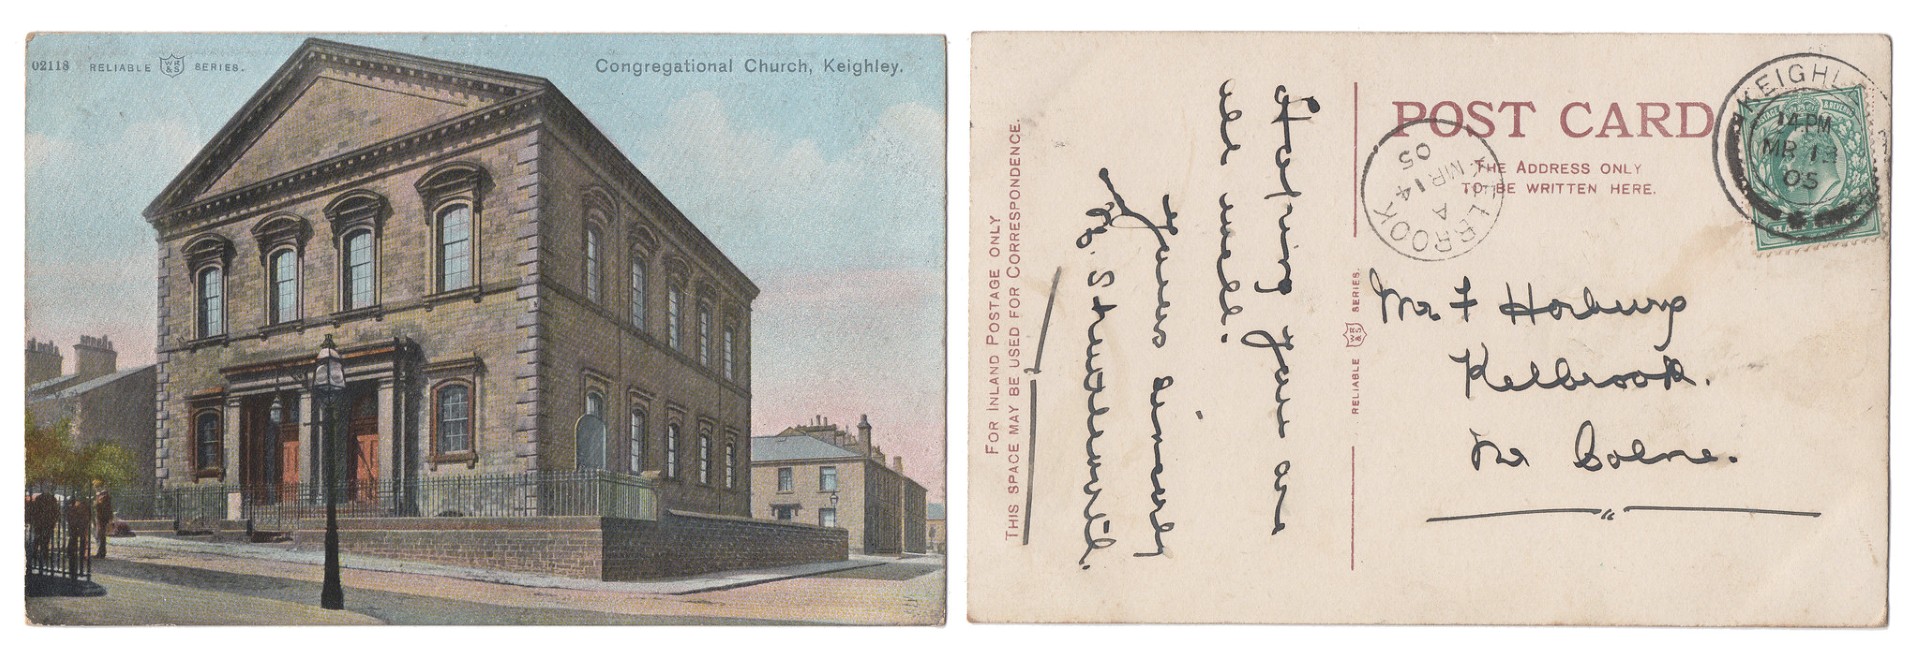 02118 RELIABLE WR&S SERIES.
Congregational Church, Keighley.
FOR INLAND POSTAGE ONLY
THIS SPACE MAY BE USED FOR CORRESPONDENCE.
Hoping you are
all well.
Yours sincerely
RELIABLE WR&S SERIES.
POST CARD
THE ADDRESS ONLY
TO BE WRITTEN HERE.
KELBROOK
A
MR 14
05
KEIGHL
MR 13
05
Mr F Horbury
Kelbrook.
Nr Colne.